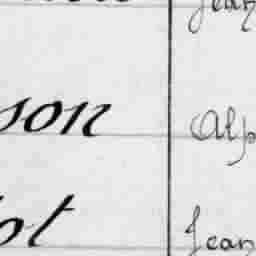 Jean
son Alp
ot Jean